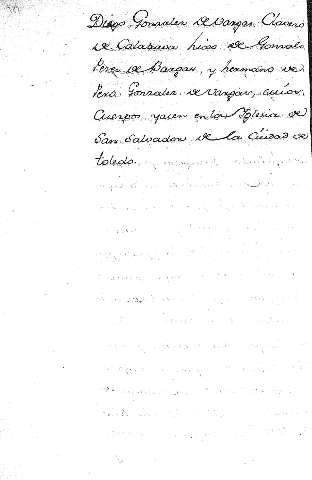 Diego Gonzalez de Vargas, Clavero
de Calatrava hijos de Gonzalo
Perez de Vargas, y hermano de
Pero Gonzalez de Vargas, cuios
Cuerpos yacen en la Iglesia de
San Salvador de la Ciudad de
toledo.